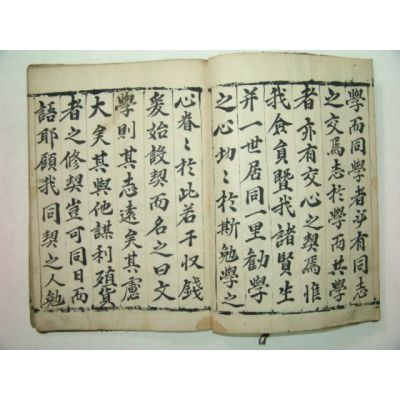 學而同學者必有同志
之交焉志於學而共學
者亦有交心之契焉惟
我食貟曁我諸賢生
并一世居同一里勸學
之心切〻於斯勉學之
心眷〻於此若干収錢
爰始設契而名之曰文
學則其志遠矣其慮
大矣其與他謀利殖貨
者之修契豈可同日而
語耶願我同契之人勉